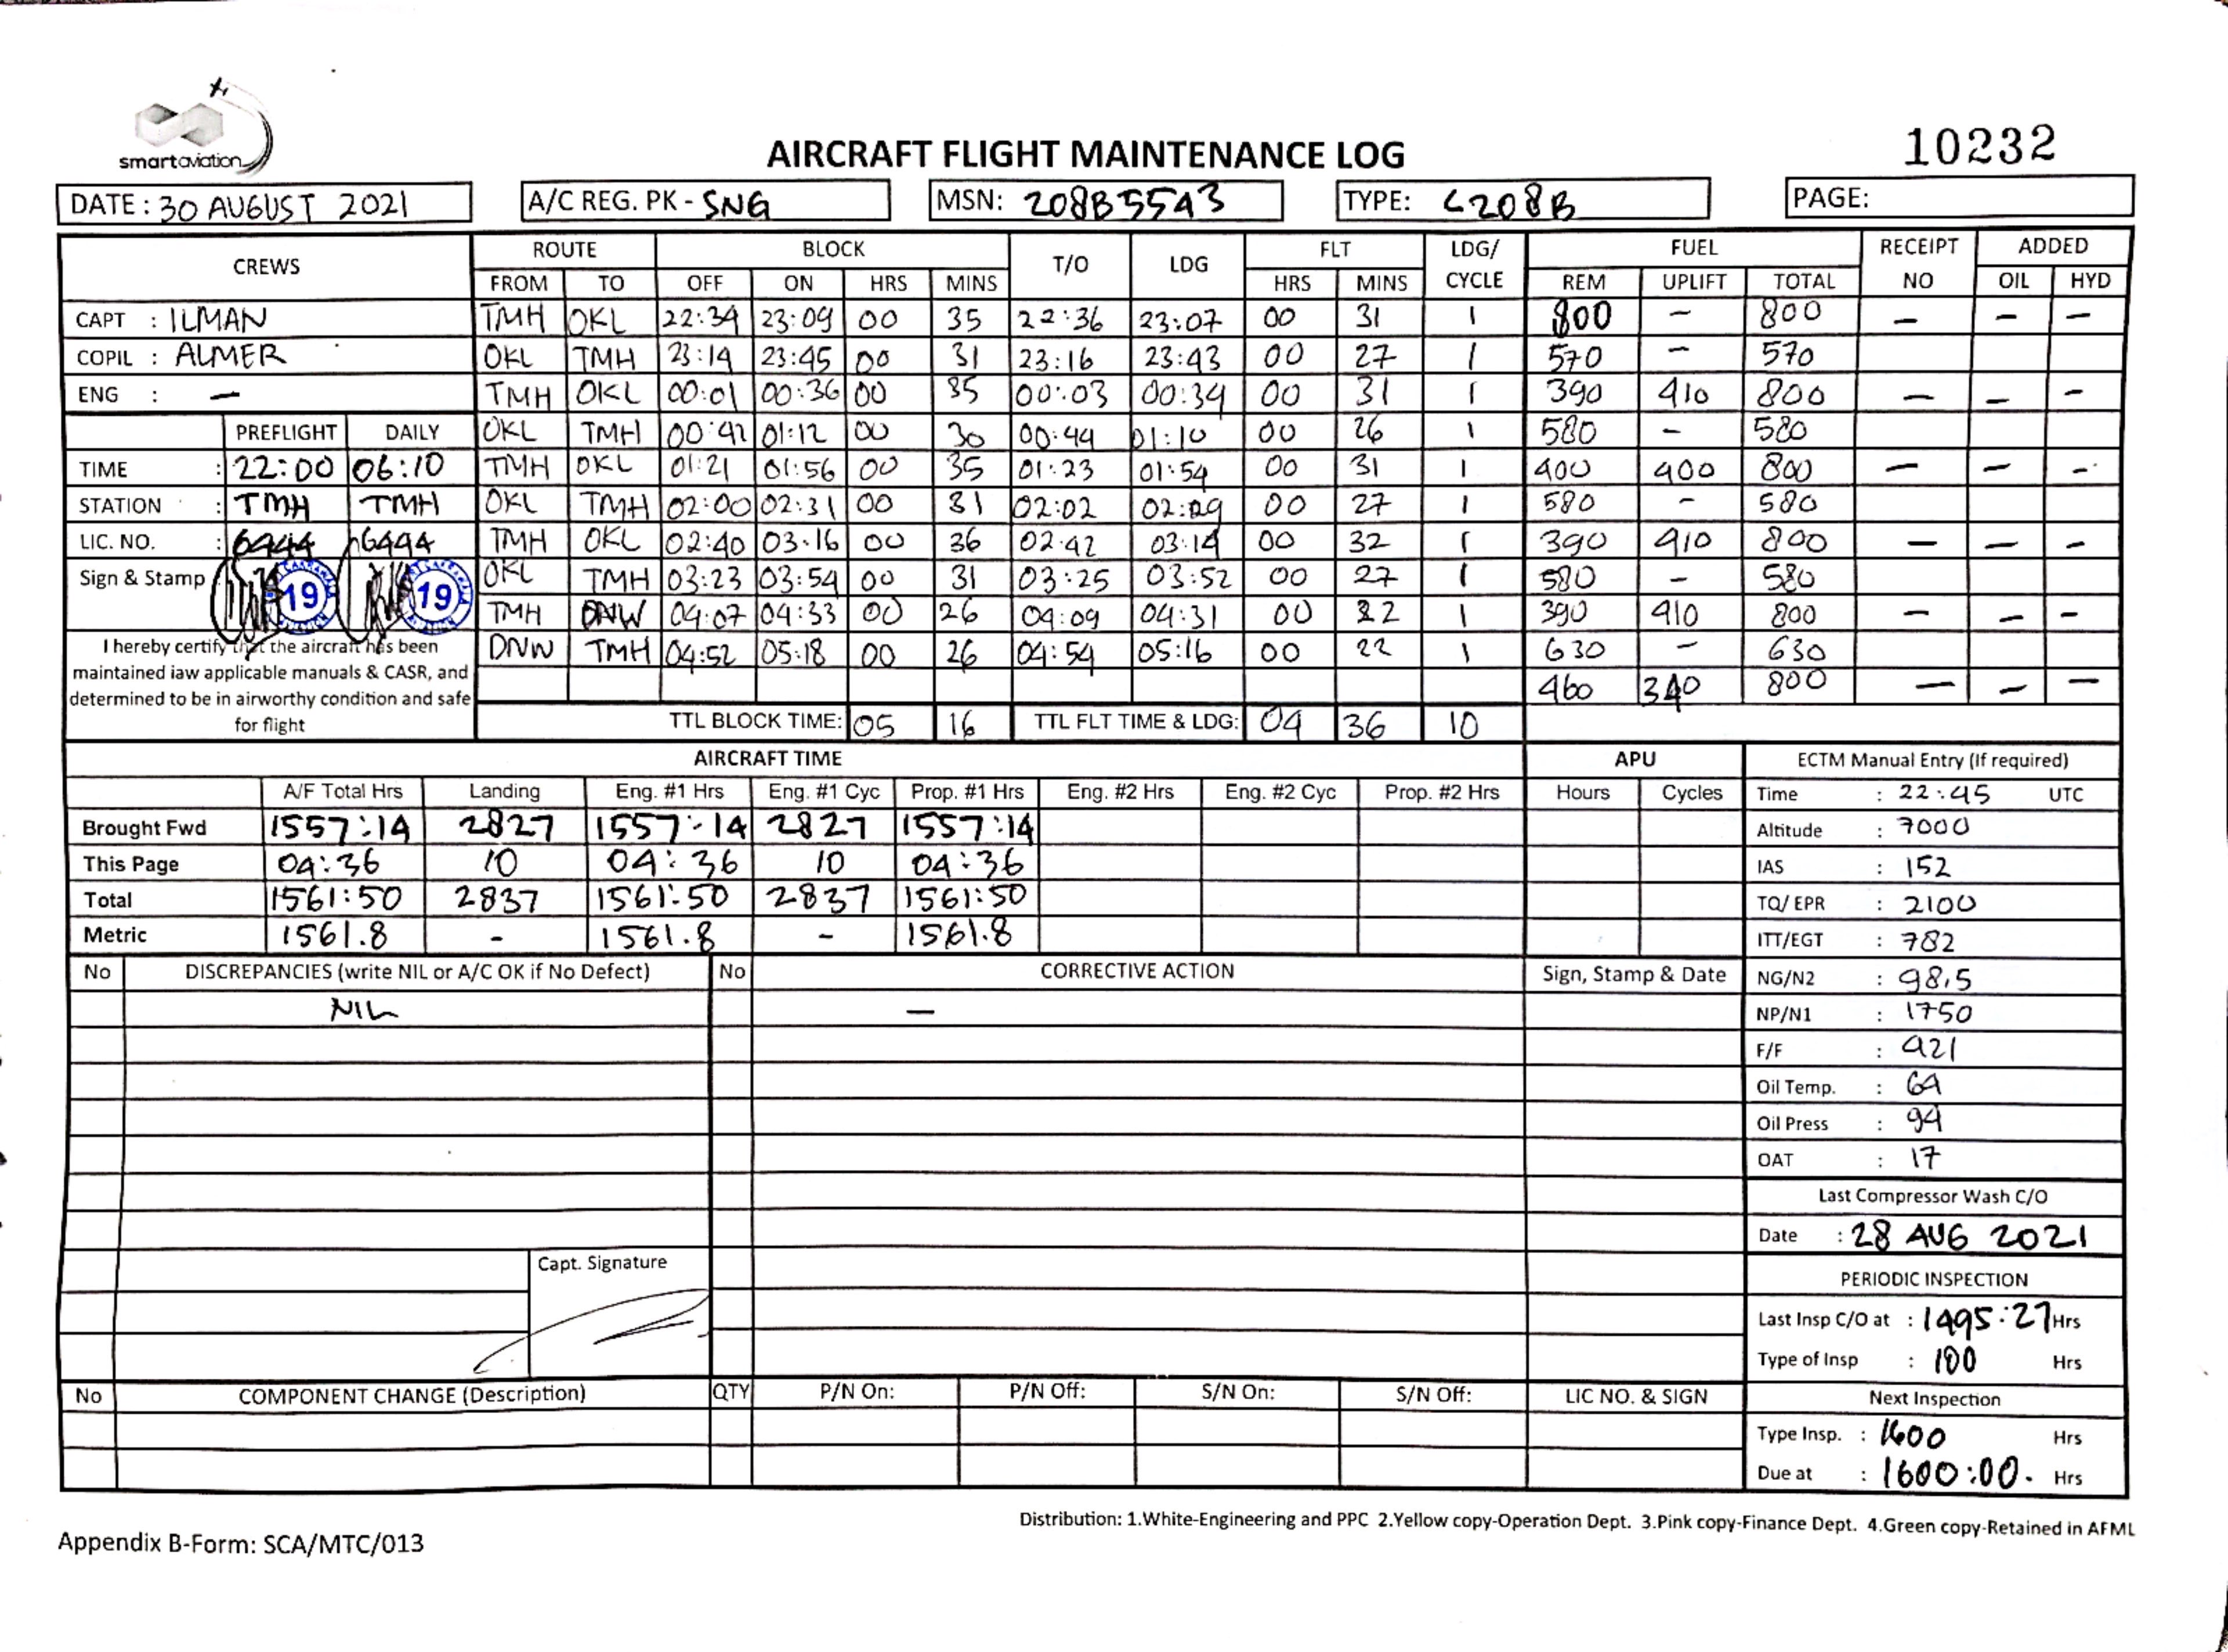 smartaviation
AIRCRAFT FLIGHT MAINTENANCE LOG
10232
DATE: 30 AUGUST 2021 A/C REG. PK - SNG MSN: 208B5543 TYPE: C208B PAGE:
CREWS ROUTE BLOCK T/O LDG FLT LDG/ CYCLE FUEL RECEIPT NO ADDED
FROM TO OFF ON HRS MINS HRS MINS REM UPLIFT TOTAL OIL HYD
CAPT : ILMAN TMH OKL 22:34 23:09 00 35 22:36 23:07 00 31 1 800 - 800 - - -
COPIL : ALMER OKL TMH 23:14 23:45 00 31 23:16 23:43 00 27 1 570 - 570
ENG : - TMH OKL 00:01 00:36 00 35 00:03 00:34 00 31 1 390 410 800 - - -
PREFLIGHT DAILY OKL TMH 00:42 01:12 00 30 00:44 01:10 00 26 1 580 - 580
TIME : 22:00 06:10 TMH OKL 01:21 01:56 00 35 01:23 01:54 00 31 1 400 400 800 - - -
STATION : TMH TMH OKL TMH 02:00 02:31 00 31 02:02 02:29 00 27 1 580 - 580
LIC. NO. : 6444 6444 TMH OKL 02:40 03:16 00 36 02:42 03:14 00 32 1 390 410 800 - - -
Sign & Stamp 19 19 OKL TMH 03:23 03:54 00 31 03:25 03:52 00 27 1 580 - 580
TMH DNW 04:07 04:33 00 26 04:09 04:31 00 22 1 390 410 800 - - -
I hereby certify that the aircraft has been DNW TMH 04:52 05:18 00 26 04:54 05:16 00 22 1 630 - 630
maintained iaw applicable manuals & CASR, and 460 340 800 - - -
determined to be in airworthy condition and safe
for flight TTL BLOCK TIME: 05 16 TTL FLT TIME & LDG: 04 36 10
AIRCRAFT TIME APU ECTM Manual Entry (If required)
A/F Total Hrs Landing Eng. #1 Hrs Eng. #1 Cyc Prop. #1 Hrs Eng. #2 Hrs Eng. #2 Cyc Prop. #2 Hrs Hours Cycles Time : 22:45 UTC
Brought Fwd 1557:14 2827 1557:14 2827 1557:14 Altitude : 7000
This Page 04:36 10 04:36 10 04:36 IAS : 152
Total 1561:50 2837 1561:50 2837 1561:50 TQ/ EPR : 2100
Metric 1561.8 - 1561.8 - 1561.8 ITT/EGT : 782
No DISCREPANCIES (write NIL or A/C OK if No Defect) No CORRECTIVE ACTION Sign, Stamp & Date NG/N2 : 98,5
NIL - NP/N1 : 1750
F/F : 421
Oil Temp. : 64
Oil Press : 94
OAT : 17
Last Compressor Wash C/O
Date : 28 AUG 2021
Capt. Signature
PERIODIC INSPECTION
Last Insp C/O at : 1495:27 Hrs
Type of Insp : 100 Hrs
No COMPONENT CHANGE (Description) QTY P/N On: P/N Off: S/N On: S/N Off: LIC NO. & SIGN Next Inspection
Type Insp. : 1600 Hrs
Due at : 1600:00. Hrs
Distribution: 1.White-Engineering and PPC 2.Yellow copy-Operation Dept. 3.Pink copy-Finance Dept. 4.Green copy-Retained in AFML
Appendix B-Form: SCA/MTC/013